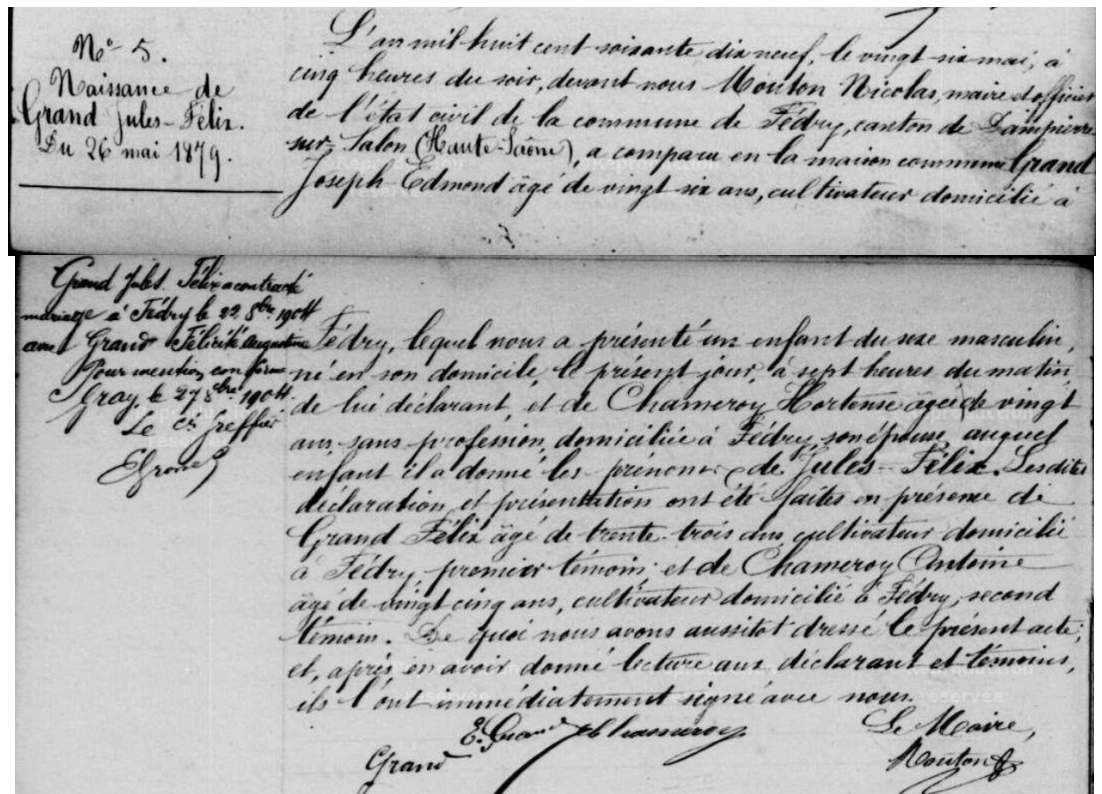 N° 5.
Naissance de
Grand Jules-Félix.
Du 26 mai 1879.
L'an mil huit cent soixante dix neuf, le vingt six mai, à
cinq heures du soir, devant nous Mouton Nicolas, maire et officier
de l'état civil de la commune de Fédry, canton de Dampierre
sur-Salon (Haute-Saône), a comparu en la maison commune Grand
Joseph-Edmond âgé de vingt six ans, cultivateur domicilié à
Grand Jules Félix a contracté
mariage à Fédry le 22 8bre 1904
avec Grand Félicité Augustine
Pour mention conforme
Gray le 27 8bre 1904.
Le cs Greffier
Fédry, lequel nous a présenté un enfant du sexe masculin,
né en son domicile, le présent jour, à sept heures du matin,
de lui déclarant, et de Chameroy Hortense âgée de vingt
ans, sans profession, domiciliée à Fédry, son épouse, auquel
enfant il a donné les prénoms de Jules-Félix. Lesdites
déclaration et présentation ont été faites en présence de
Grand Félix âgé de trente-trois ans cultivateur domicilié
à Fédry, premier témoin; et de Chameroy Antoine
âgé de vingt cinq ans, cultivateur domicilié à Fédry, second
témoin. De quoi nous avons aussitot dressé le présent acte;
et, après en avoir donné lecture aux déclarant et témoins,
ils l'ont immédiatement signé avec nous.
E. Grand Chameroy
Le Maire,
Grand
Mouton